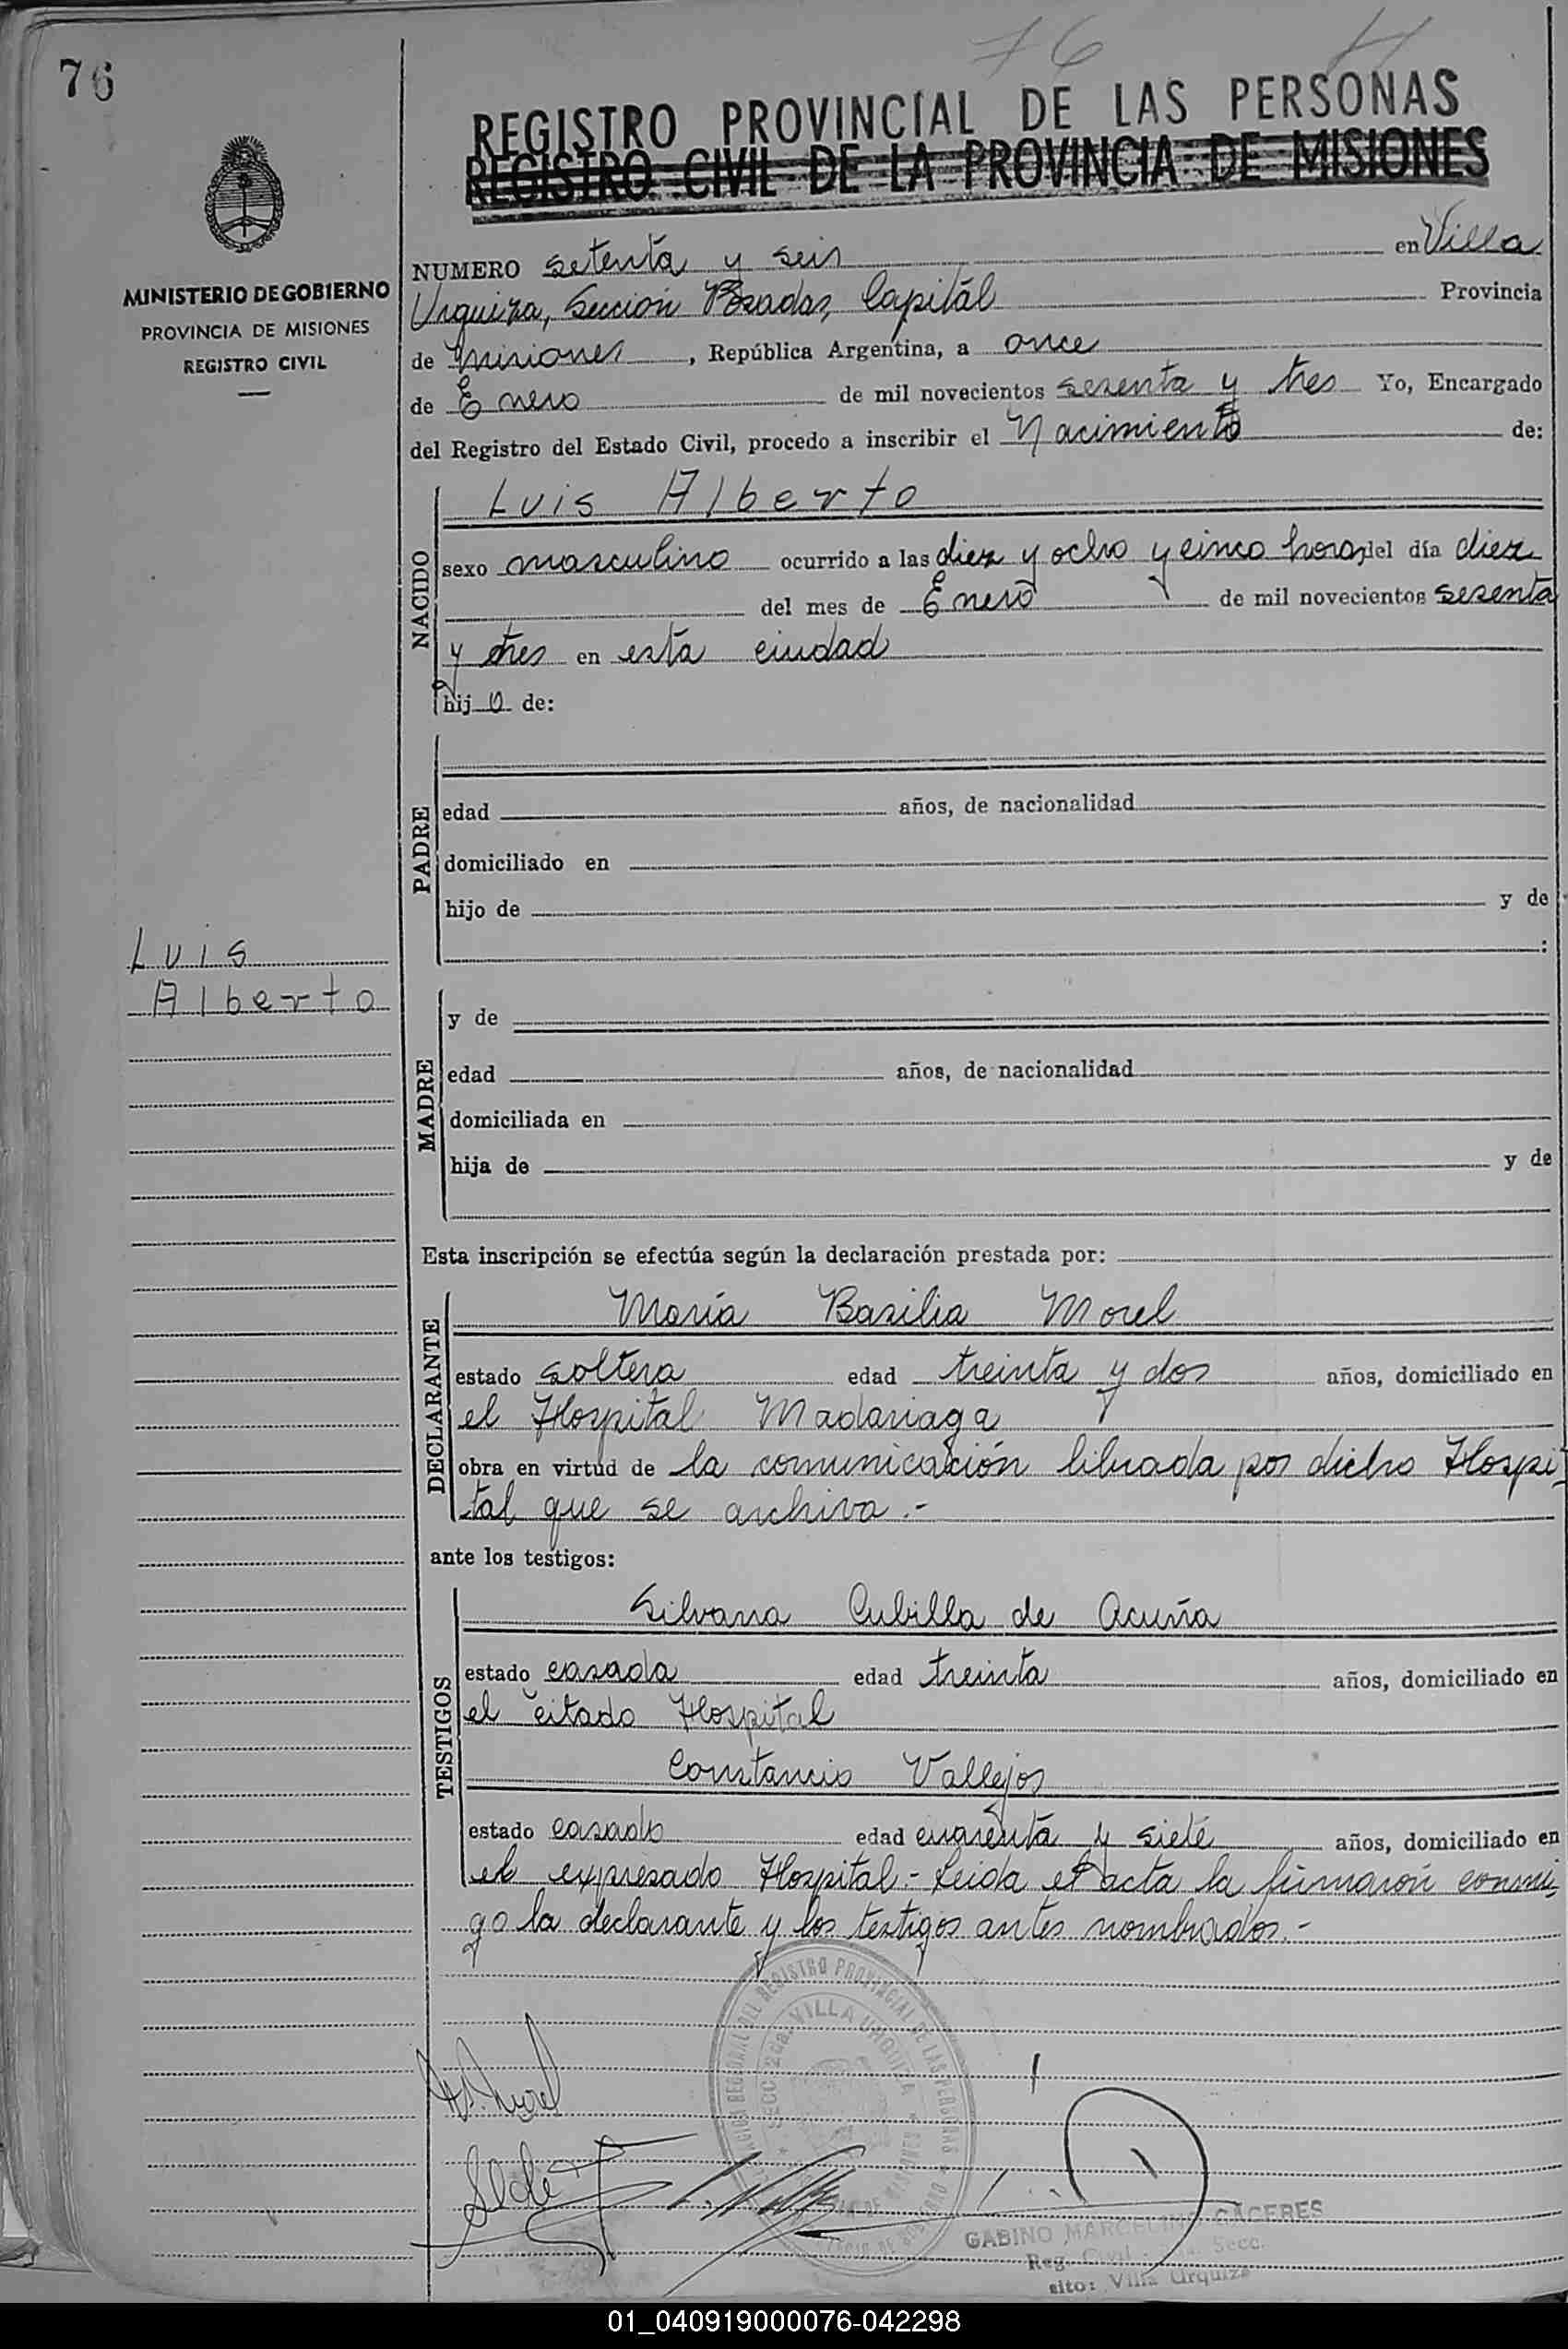 76
76
REGISTRO PROVINCIAL DE LAS PERSONAS
REGISTRO CIVIL DE LA PROVINCIA DE MISIONES
MINISTERIO DE GOBIERNO
PROVINCIA DE MISIONES
REGISTRO CIVIL
NUMERO setenta y seis en Villa
Urquiza, Sección Posadas, Capitál Provincia
de Misiones, República Argentina, a once
de Enero de mil novecientos sesenta y tres Yo, Encargado
del Registro del Estado Civil, procedo a inscribir el Nacimiento de:
NACIDO
Luis Alberto
sexo masculino ocurrido a las diez y ocho y cinco horas, del día diez
del mes de Enero de mil novecientos sesenta
y tres en esta ciudad
hijo de:
PADRE
edad años, de nacionalidad
domiciliado en
hijo de y de
:
Luis
Alberto
MADRE
y de
edad años, de nacionalidad
domiciliada en
hija de y de
Esta inscripción se efectúa según la declaración prestada por:
DECLARANTE
María Basilia Morel
estado soltera edad treinta y dos años, domiciliado en
el Hospital Madariaga
obra en virtud de la comunicación librada por dicho Hospi-
tal que se archiva.-
ante los testigos:
TESTIGOS
Silvana Cubilla de Acuña
estado casada edad treinta años, domiciliado en
el citado Hospital
Constancio Vallejos
estado casado edad cuarenta y siete años, domiciliado en
el expresado Hospital.- Leida el acta la firmaron conmi-
go la declarante y los testigos antes nombrados.-
REGISTRO PROVINCIAL DE LAS PERSONAS
SECC. 2da. VILLA URQUIZA
GABINO MARCELINO CACERES
Reg. Civil Secc.
sito: Villa Urquiza
01_040919000076-042298